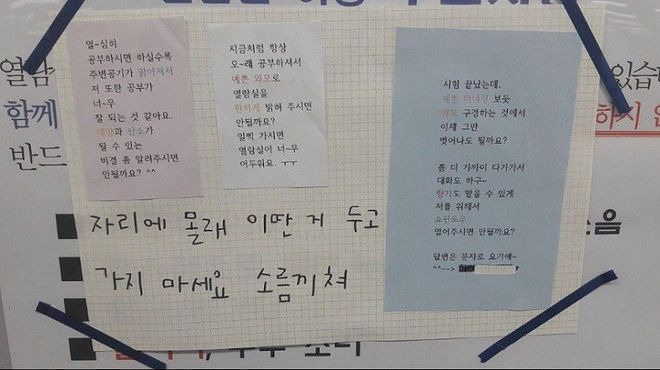 열람
함께
반드
있습
하지 않
열~심히
공부하시면 하실수록
주변공기가 맑아져서
저 또한 공부가
너~무
잘 되는 것 같아요.
태양과 산소가
될 수 있는
비결 좀 알려주시면
안될까요? ^^
지금처럼 항상
오~래 공부하셔서
예쁜 외모로
열람실을
환하게 밝혀 주시면
안될까요?
일찍 가시면
열람실이 너~무
어두워요. ㅜㅜ
시험 끝났는데,
예쁜 마네킹 보듯
외모 구경하는 것에서
이제 그만
벗어나도 될까요?
좀 더 가까이 다가가서
대화도 하구~
향기도 맡을 수 있게
저를 위해서
쇼윈도우
열어주시면 안될까요?
답변은 문자로 요기에~
^^-->
자리에 몰래 이딴 거 두고
가지 마세요 소름끼쳐